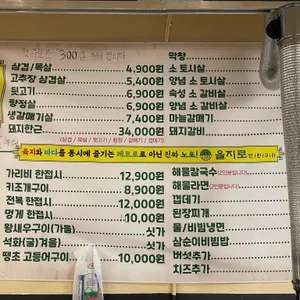 300
삼겹/목살 4,900원
고추장 삼겹살 5,400원
뒷고기 6,900원
항정살 6,900원
생갈매기살 7,400원
돼지한근 34,000원
(삼겹 / 목살 / 뒷고기 / 항정 / 갈매기 / 껍데기)
막창
양념 소 토시살
양념 소 토시살
숙성 소 갈비살
양념 소 갈비살
마늘갈매기
돼지갈비
육지와 바다를 동시에 즐기는 레트로로 아닌 진짜 노포! 을지로
가리비 한접시 12,900원
키조개구이 8,900원
전복 한접시 12,000원
멍게 한접시 10,000원
왕새우구이(가을) 싯가
석화(굴)(겨울) 싯가
땡초 고등어구이 10,000원
해물칼국수(2인분입니다)
해물라면(2인분입니다)
껍데기
된장찌개
물/비빔냉면
삼순이비빔밥
버섯추가
치즈추가